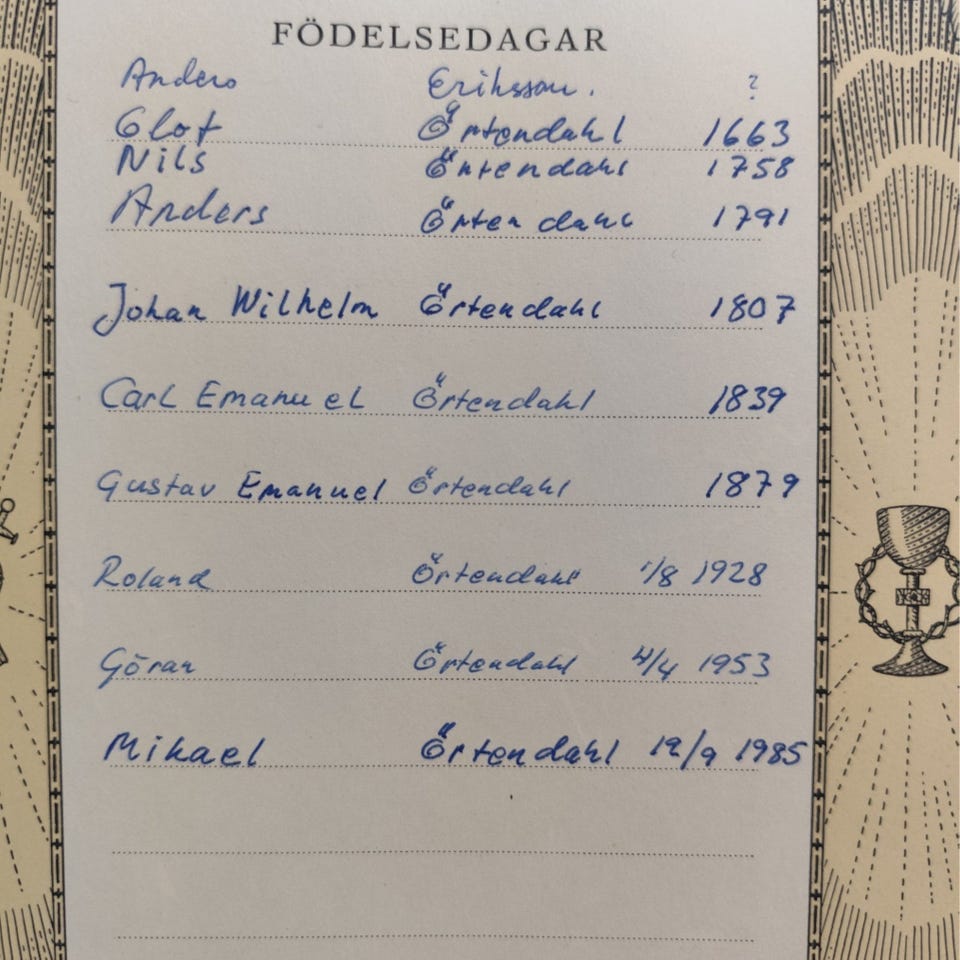 FÖDELSEDAGAR
Anders Eriksson. ?
Olof Örtendahl 1663
Nils Örtendahl 1758
Anders Örtendahl 1791
Johan Wilhelm Örtendahl 1807
Carl Emanuel Örtendahl 1839
Gustav Emanuel Örtendahl 1879
Roland Örtendahl 1/8 1928
Göran Örtendahl 4/4 1953
Mikael Örtendahl 19/9 1985